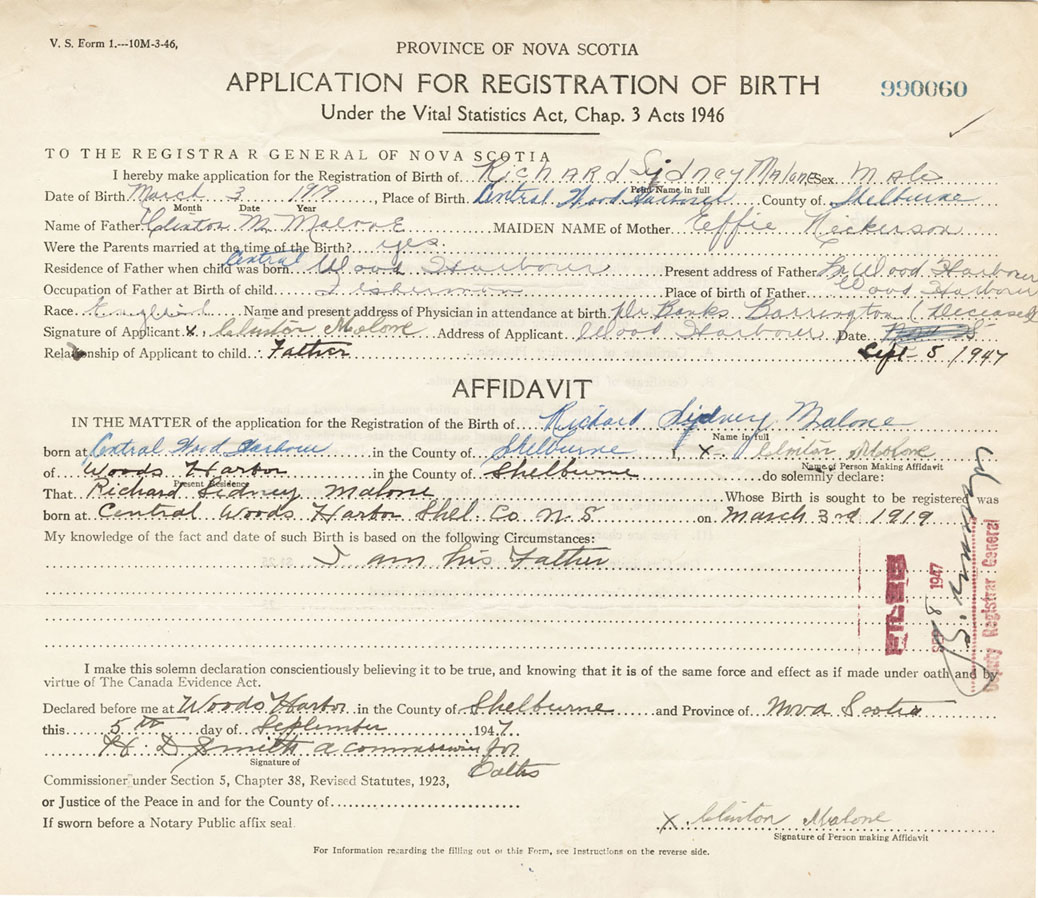 V. S. Form 1.---10M-3-46,
PROVINCE OF NOVA SCOTIA
APPLICATION FOR REGISTRATION OF BIRTH
990060
Under the Vital Statistics Act, Chap. 3 Acts 1946
TO THE REGISTRAR GENERAL OF NOVA SCOTIA
I hereby make application for the Registration of Birth of Richard Sidney Malone Sex Male
Print Name in full
Date of Birth March 3 1919, Place of Birth Central Wood Harbour County of Shelburne
Month Date Year
Name of Father Clinton M. Malone MAIDEN NAME of Mother Effie Nickerson
Were the Parents married at the time of the Birth? yes
Residence of Father when child was born Central Wood Harbour Present address of Father Wood Harbour
Occupation of Father at Birth of child Fisherman Place of birth of Father Wood Harbour
Race English Name and present address of Physician in attendance at birth Dr Banks Barrington (Deceased
Signature of Applicant x Clinton Malone Address of Applicant Wood Harbour Date
Relationship of Applicant to child Father Sept 5/1947
AFFIDAVIT
IN THE MATTER of the application for the Registration of the Birth of Richard Sidney Malone
Name in full
born at Central Wood Harbour in the County of Shelburne I x Clinton Malone
Name of Person Making Affidavit
of Woods Harbor in the County of Shelburne do solemnly declare:
Present Residence
That Richard Sidney Malone Whose Birth is sought to be registered was
born at Central Woods Harbor Shel. Co. N. S on March 3rd 1919
My knowledge of the fact and date of such Birth is based on the following Circumstances:
I am his Father
FILED
SEP 8 1947
Deputy Registrar General
I make this solemn declaration conscientiously believing it to be true, and knowing that it is of the same force and effect as if made under oath and by
virtue of The Canada Evidence Act.
Declared before me at Woods Harbor in the County of Shelburne and Province of Nova Scotia
this 5th day of September 1947
H. D Smith a commissioner for
Oaths
Signature of
Commissioner under Section 5, Chapter 38, Revised Statutes, 1923,
or Justice of the Peace in and for the County of
If sworn before a Notary Public affix seal.
x Clinton Malone
Signature of Person making Affidavit
For Information regarding the filling out of this Form, see Instructions on the reverse side.